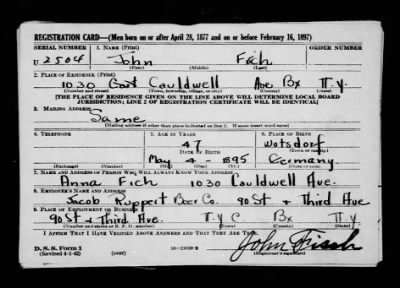 REGISTRATION CARD—(Men born on or after April 28, 1877 and on or before February 16, 1897)
SERIAL NUMBER 1. NAME (Print) ORDER NUMBER
U 2504 John Fich
(First) (Middle) (Last)
2. PLACE OF RESIDENCE (Print)
1030 East Cauldwell Ave Bx N.Y.
(Number and street) (Town, township, village, or city) (County) (State)
[THE PLACE OF RESIDENCE GIVEN ON THE LINE ABOVE WILL DETERMINE LOCAL BOARD
JURISDICTION; LINE 2 OF REGISTRATION CERTIFICATE WILL BE IDENTICAL]
3. MAILING ADDRESS
Same
[Mailing address if other than place indicated on line 2. If same insert word same]
4. TELEPHONE 5. AGE IN YEARS 6. PLACE OF BIRTH
47 Wotsdorf
DATE OF BIRTH (Town or county)
May 4 - 1895 Germany
(Exchange) (Number) (Mo.) (Day) (Yr.) (State or country)
7. NAME AND ADDRESS OF PERSON WHO WILL ALWAYS KNOW YOUR ADDRESS
Anna Fich 1030 Cauldwell Ave.
8. EMPLOYER'S NAME AND ADDRESS
Jacob Ruppert Beer Co. 90 St + Third Ave
9. PLACE OF EMPLOYMENT OR BUSINESS
90 St + Third Ave. N.Y.C Bx N.Y.
(Number and street or R. F. D. number) (Town) (County) (State)
I AFFIRM THAT I HAVE VERIFIED ABOVE ANSWERS AND THAT THEY ARE TRUE.
D. S. S. Form 1
(Revised 4-1-42) (over) John Frisch
(Registrant's signature)